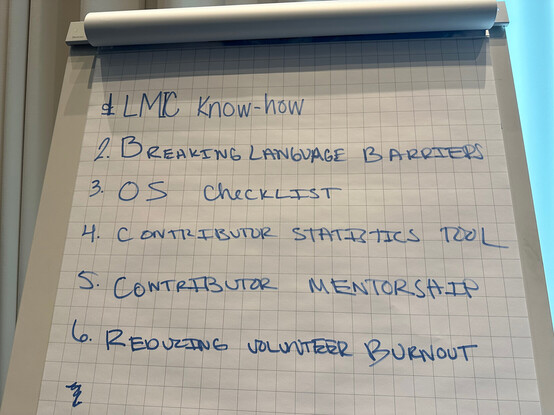 1. LMIC Know-how
2. BREAKING LANGUAGE BARRIERS
3. OS CheckLIST
4. CONTRIBUTOR STATISTICS TOOL
5. CONTRIBUTOR MENTORSHIP
6. REDUCING VOLUNTEER BURNOUT